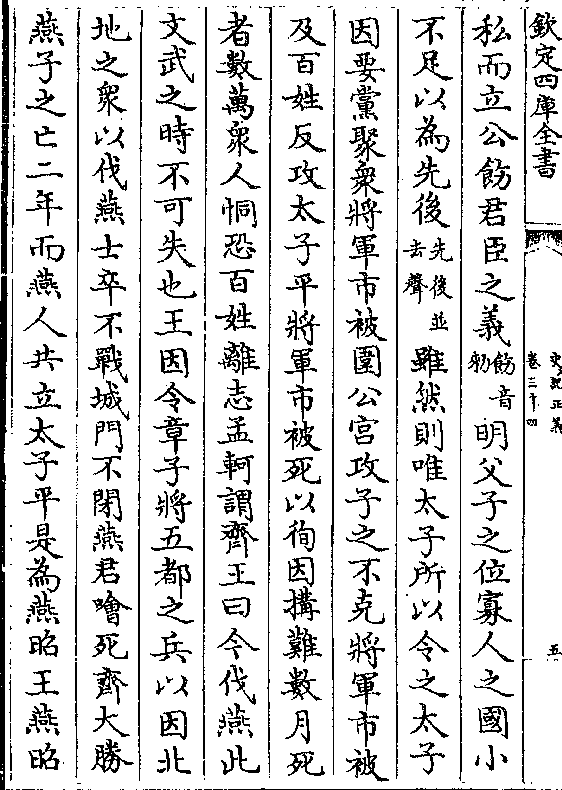 欽定四庫全書
史記正義
卷三十四
五
私而立公飭君臣之義飭音勑明父子之位寡人之國小
不足以為先後先後並去聲雖然則唯太子所以令之太子
因要黨聚衆將軍市被圍公宮攻子之不克將軍市被
及百姓反攻太子平將軍市被死以徇因搆難數月死
者數萬衆人恫恐百姓離志孟軻謂齊王曰今伐燕此
文武之時不可失也王因令章子將五都之兵以因北
地之衆以伐燕士卒不戰城門不閉燕君噲死齊大勝
燕子之亡二年而燕人共立太子平是為燕昭王燕昭